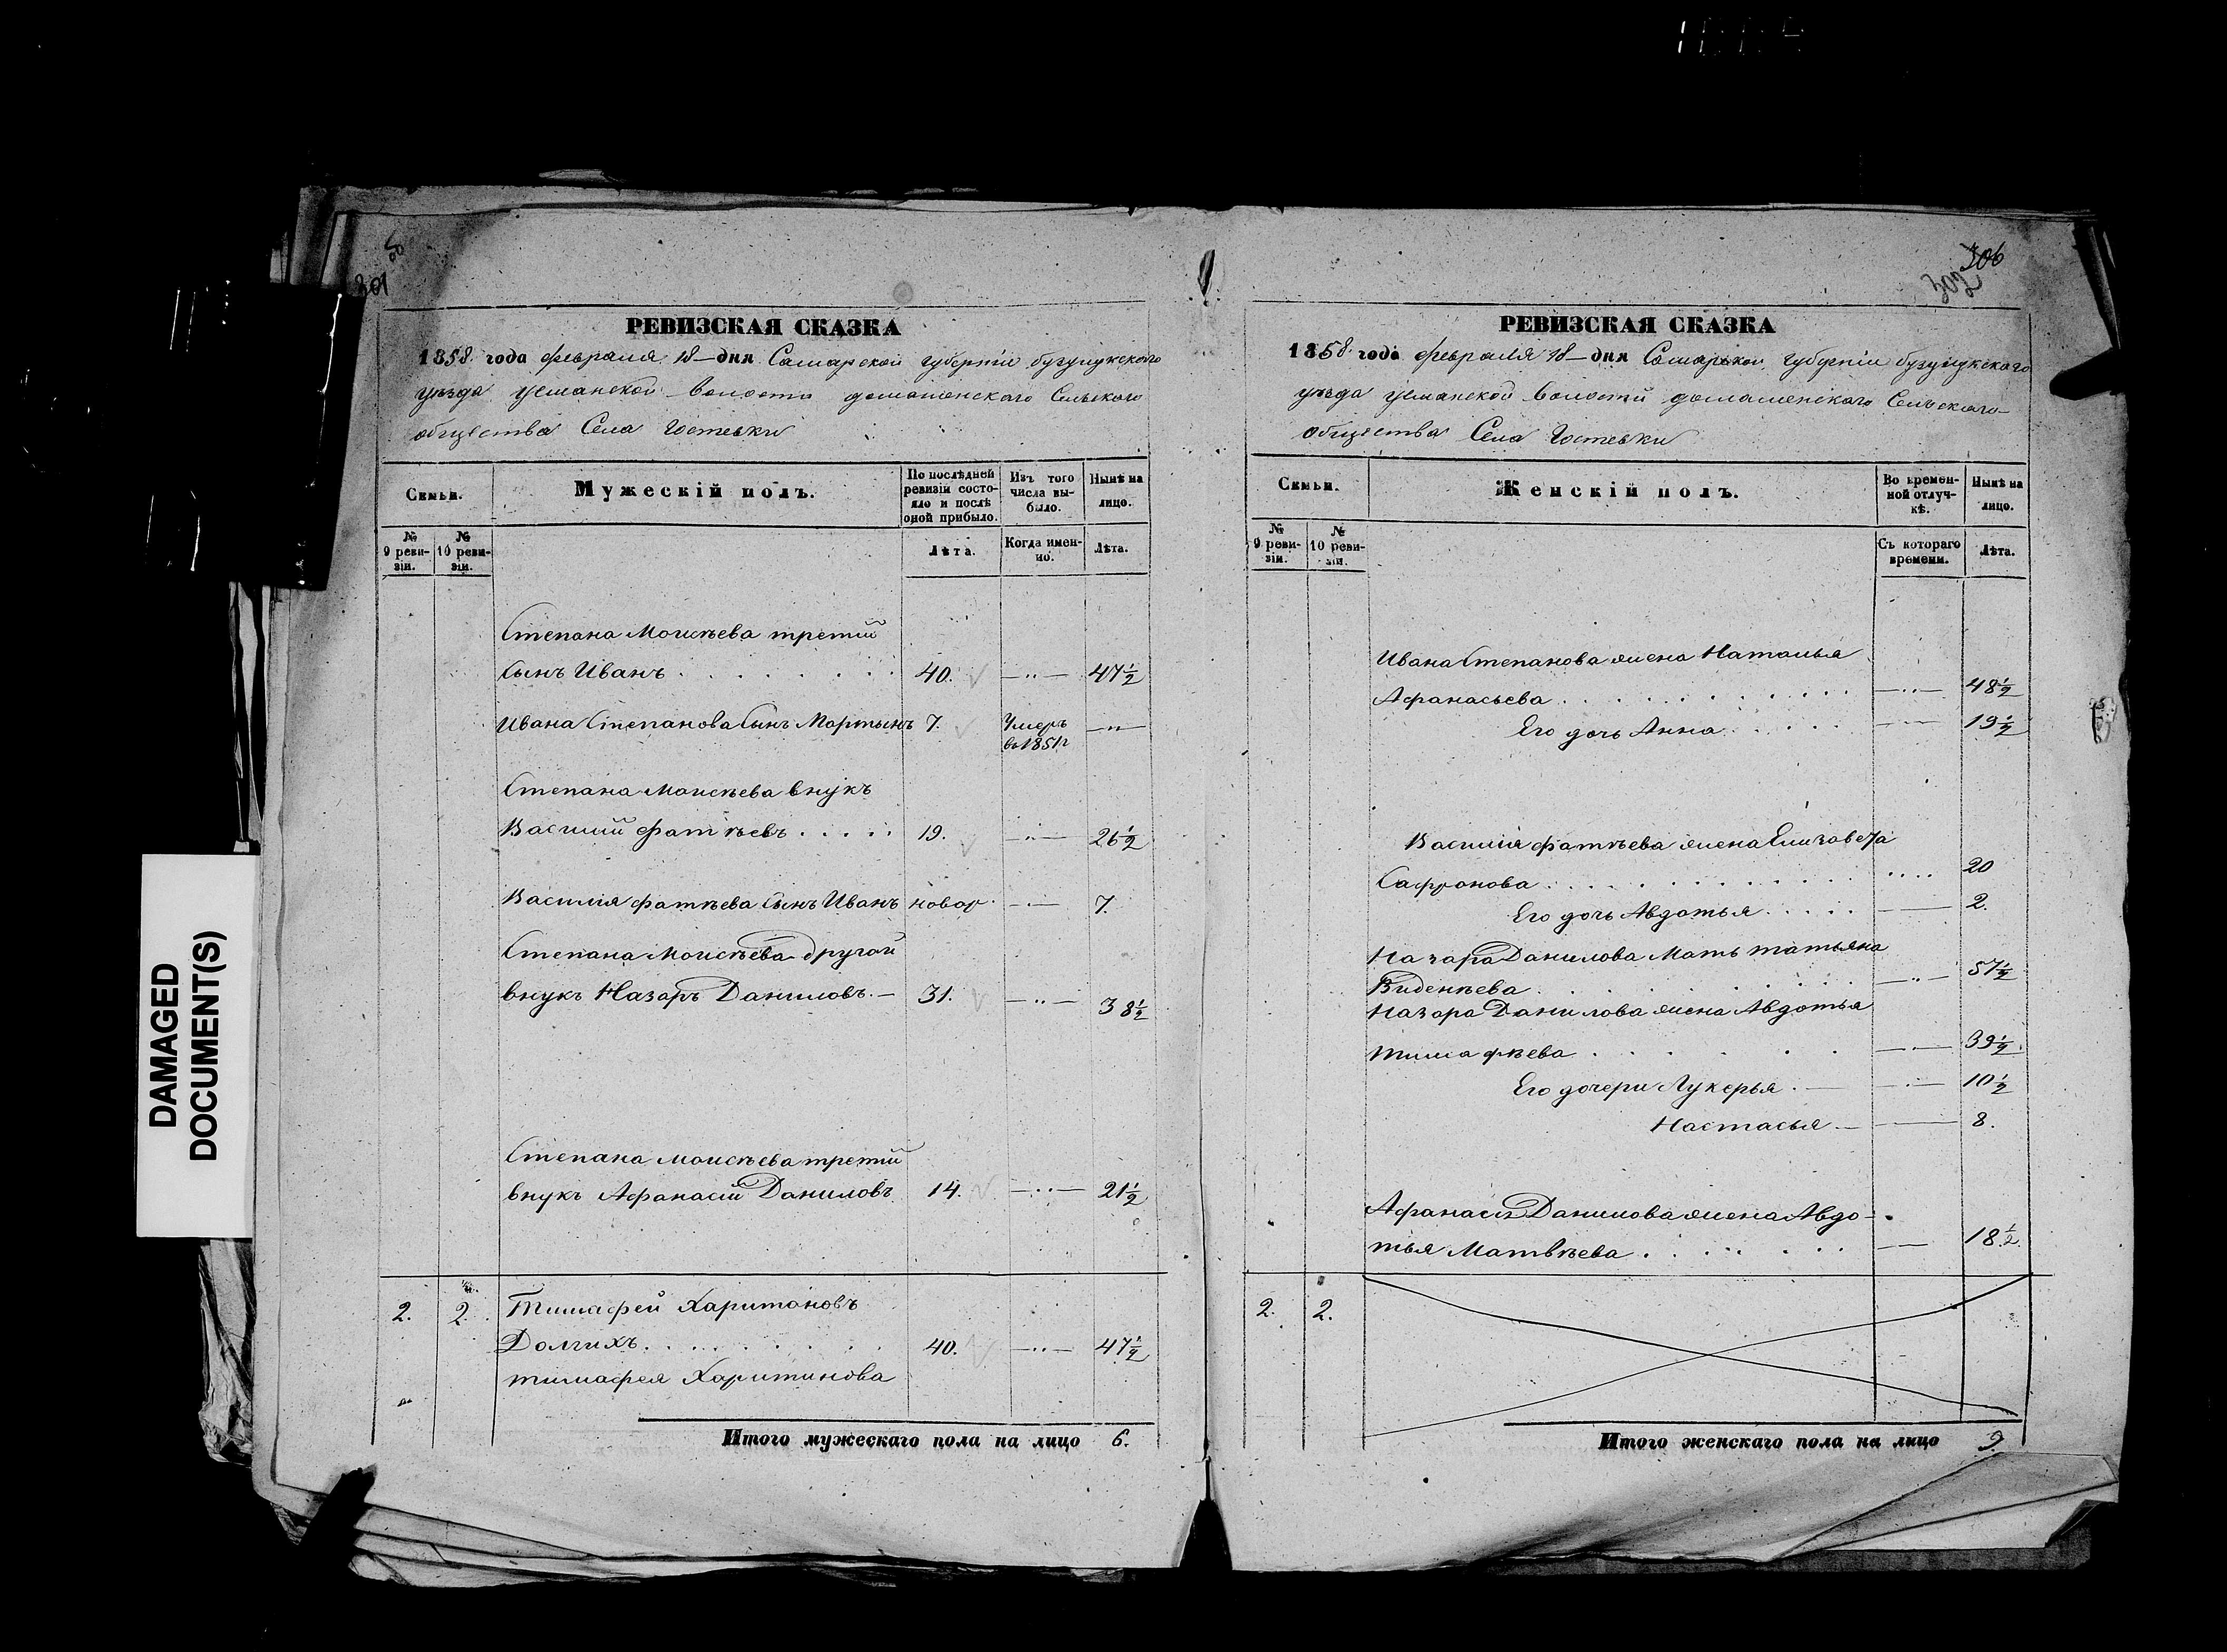 DAMAGED
DOCUMENT(S)
301
РЕВИЗСКАЯ СКАЗКА
1858 года февраля 18 – дня Самарской губерніи бузулукскаго
уѣзда усманской волости домашенскаго Сельскаго
общества Села Гостевки
Семьи.
Мужескій полъ.
По послѣдней ревизіи состояло и послѣ оной прибыло.
Изъ того числа выбыло.
Нынѣ на лицо.
№ 9 ревизіи.
№ 10 ревизіи.
Лѣта.
Когда именно.
Лѣта.
Степана Моисѣева третій
Сынъ Иванъ . . . . 40. —"— 47½
Ивана Степанова Сынъ Мартынъ 7. Умеръ —"—
во 1851 г
Степана Моисѣева внукъ
Василий Фатѣевъ . . . . . 19. —"— 26½
Василия Фатѣева Сынъ Иванъ новор. — 7.
Степана Моисѣева другой
внукъ Назаръ Даниловъ. — 31. —"— 38½
Степана Моисѣева третій
внукъ Афанасій Даниловъ 14. —"— 21½
2. 2. Тимафей Харитоновъ
Долгихъ. . . . 40. —"— 47½
тимафея Харитинова
Итого мужескаго пола на лицо 6.
306
302
РЕВИЗСКАЯ СКАЗКА
1858 года февраля 18 – дня Самарской губерніи бузулукскаго
уѣзда усманской волости домашенскаго Сельскаго
общества Села Гостевки
Семьи.
Женскій полъ.
Во временной отлучкѣ.
Нынѣ на лицо.
№ 9 ревизіи.
№ 10 ревизіи.
Съ котораго времени.
Лѣта.
Ивана Степанова жена Наталья
Афанасьева . . . . —"— 48½
Его дочь Анна . . . . — 19½
Василия Фатѣева жена Елизавета
Сафронова . . . . 20
Его дочь Авдотья . . . . — 2.
Назара Данилова Мать татьяна
. . . . —"— 57½
Назара Данилова жена Авдотья
тимафѣева . . . . — 39½
Его дочери Лукерья . — — 10½
Настасья — — 8.
Афанасія Данилова жена Авдо-
тья Матвѣева . . . . — 18½
2. 2.
Итого женскаго пола на лицо 9